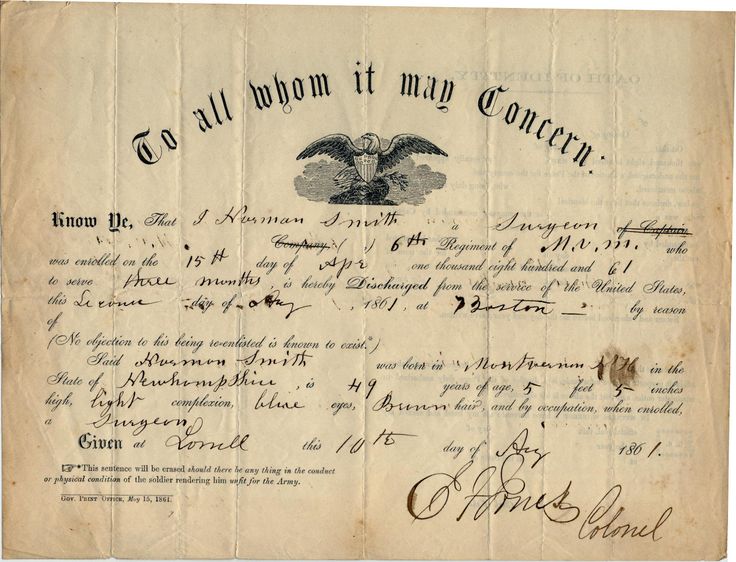 To all whom it may Concern:
Know Ye, That J Norman Smith a Surgeon of Captain
Company, ( ) 6th Regiment of M.V.M. who
was enrolled on the 15th day of Apr one thousand eight hundred and 61
to serve three months is hereby Discharged from the service of the United States,
this Second day of Aug, 1861, at Boston by reason
of
(No objection to his being re-enlisted is known to exist.*)
Said Norman Smith was born in Montvernon in the
State of Newhampshire, is 49 years of age, 5 feet 5 inches
high, light complexion, blue eyes, Brown hair, and by occupation, when enrolled,
a Surgeon
Given at Lowell this 10th day of Aug 1861.
☞*This sentence will be erased should there be any thing in the conduct
or physical condition of the soldier rendering him unfit for the Army.
Gov. Print Office, May 15, 1861.
E F Jones
Colonel
OATH OF IDENTITY.